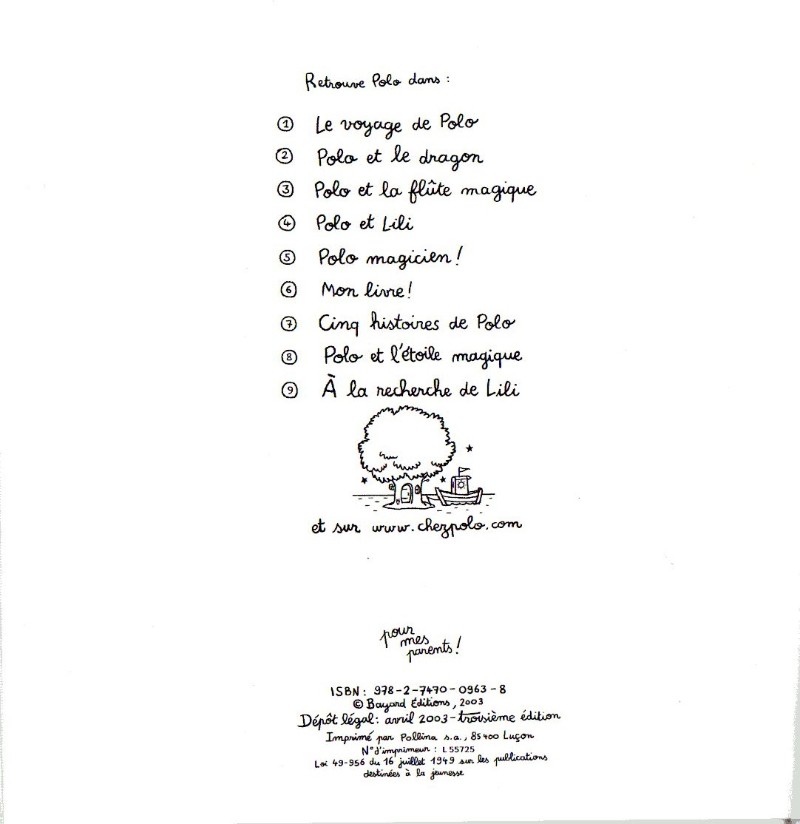 Retrouve Polo dans :
① Le voyage de Polo
② Polo et le dragon
③ Polo et la flûte magique
④ Polo et Lili
⑤ Polo magicien !
⑥ Mon livre !
⑦ Cinq histoires de Polo
⑧ Polo et l'étoile magique
⑨ À la recherche de Lili
et sur www.chezpolo.com
pour
mes
parents !
ISBN : 978-2-7470-0963-8
© Bayard Éditions, 2003
Dépôt légal : avril 2003 - troisième édition
Imprimé par Pollina s.a., 85400 Luçon
N° d'imprimeur : L55725
Loi 49-956 du 16 juillet 1949 sur les publications
destinées à la jeunesse